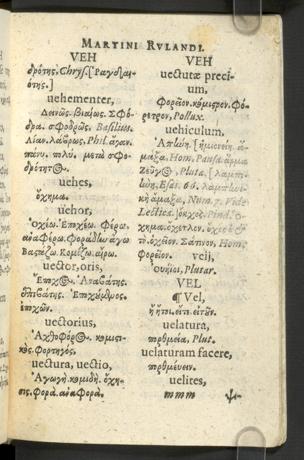 MARTINI RVLANDI.
VEH
δρότης. Chrys. [Ῥαγδαι-
ότης.]
uehementer,
Δεινῶς. βιαίως. Σφό-
δρα. σφοδρῶς. Basilius.
Λίαν. λαύρως, Phil. ἄγαν.
πάνυ. πολύ. μετὰ σφο-
δρότητος.
uehes,
ὄχημα.
uehor,
Ὀχέω. Ἐποχέω. Φέρω.
ἀναφέρω. Φοράδην ἄγω
Βαστάζω. Κομίζω. αἴρω.
uector, oris,
uectorius,
Ἀχθοφόρος. κομιστι-
κός. φορτηγός.
uectura, uectio,
Ἀγωγή. κομιδή. ὄχη-
σις. φορά. ἀναφορά.
VEH
uecturæ preci-
um,
Φορεῖον. κόμιστρον. Φό-
ρετρον, Pollux.
uehiculum,
Ἀπήνη. [ἡμιονείη. ἅ-
μαξα, Hom, Pausa. ἅρμα
Ζεῦγος, Pluta. [λαμπ-
ήνη, Esai. 66. λαμπηνι-
κὴ ἅμαξα, Num. 7. Vide
Lectica.] ὄκχος. Pind. ὄ-
χημα. ὄχετλον.
Σατίνον, Hom.
Φορεῖον. veij,
Οὐήιοι, Plutar.
VEL
¶ Vel,
ἢ ἤτοι. εἴτε. εἴτ᾽ οὖν.
uelatura,
πορθμεία, Plut.
uelaturam facere,
πορθμεύειν.
uelites,
mmm ψ-